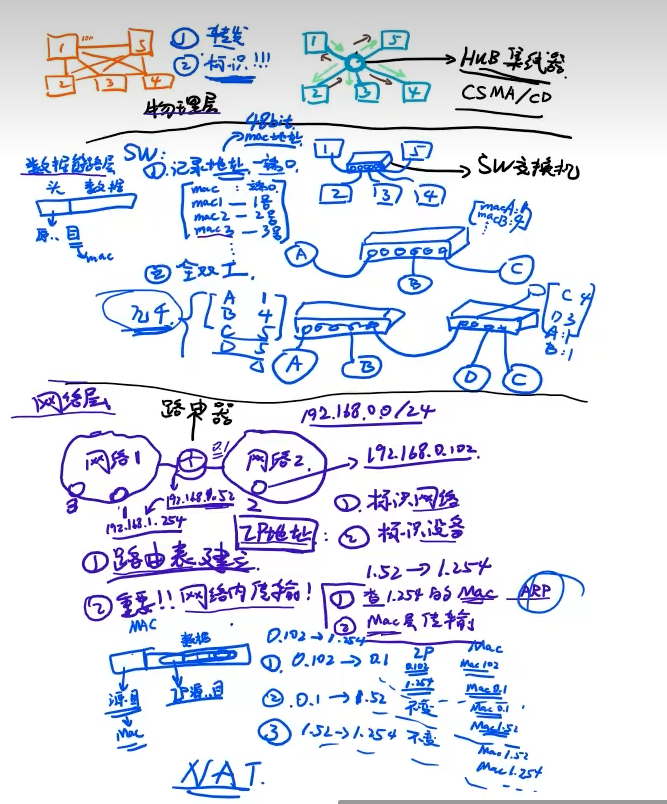 1 5
① 转发
② 标识!!!
2 3 4
物理层
1 5
2 3 4
HUB 集线器
CSMA/CD
数据链路层
头 数据
源.. 目
mac
SW:
48bit
mac地址
① 记录地址—端口.
mac : 端口
mac1 — 1号
mac2 — 2号
mac3 — 3号
② 全双工.
1 5
2 3 4
SW交换机
macA:1
macB:4
A B C
A 1
B 4
C 5
D 5
A B
D C
C 4
D 3
A:1
B:1
网络层
路由器
192.168.0.0/24
网络1
网络2
0.1
192.168.0.102.
3 1 2
192.168.1.254
IP地址:
① 标识网络
② 标识设备
① 路由表建立
② 重要!! 网络内传输!
1.52 → 1.254
① 查1.254的Mac ARP
② Mac层传输
MAC
数据
源目
Mac
IP源..目
0.102 → 1.254
IP Mac
① 0.102 → 0.1
0.102 Mac102
1.254 Mac0.1
不变 Mac0.1
Mac1.52
③ 1.52 → 1.254 不变
Mac1.52
Mac1.254
NAT.